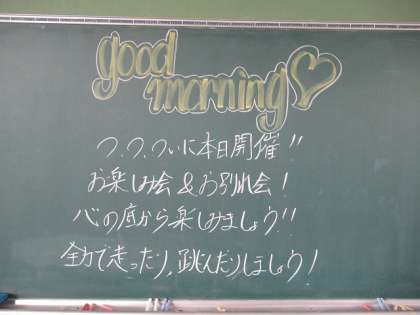 good
morning♡
つ、つ、ついに本日開催!!
お楽しみ会&お別れ会!
心の底から楽しみましょう!!
全力で走ったり、跳んだりしましょう!